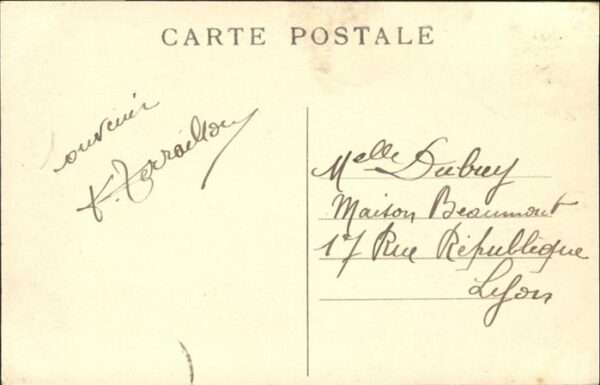 CARTE POSTALE
souvenir
Melle Dubuy
Maison Beaumont
17 Rue République
Lyon